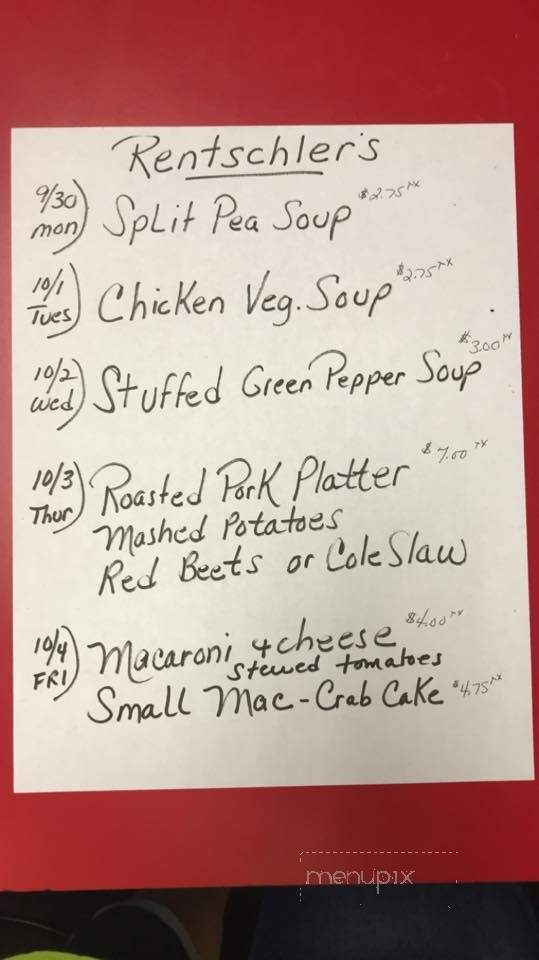 Rentschler's
9/30 mon) Split Pea Soup $2.75 TX
10/1 Tues) Chicken Veg. Soup $2.75 TX
10/2 Wed) Stuffed Green Pepper Soup $3.00 TX
10/3 Thur) Roasted Pork Platter $7.00 TX
Mashed Potatoes
Red Beets or Cole Slaw
10/4 FRI) Macaroni & cheese $4.00 TX
Stewed tomatoes
Small Mac-Crab Cake $4.75 TX
menupix